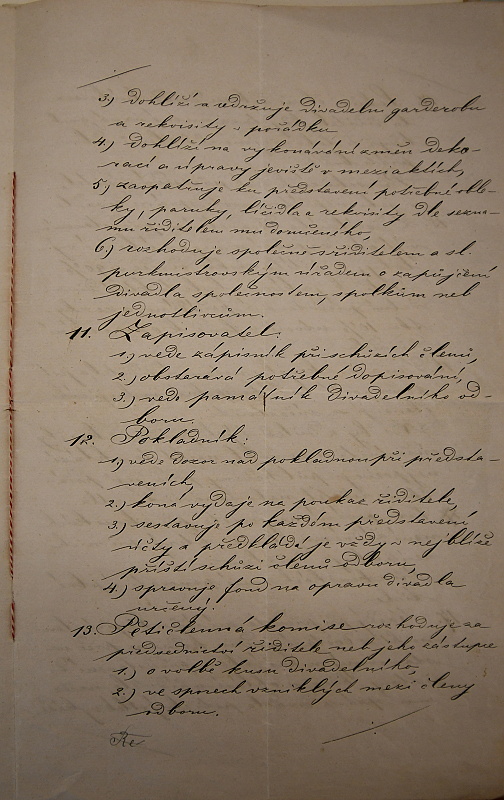 3.) dohlíží a udržuje divadelní garderobu
a rekvisity v pořádku
4.) dohlíží na vykonávání změn deko-
rací a úpravy jeviště v meziaktích,
5.) zaopatřuje ku představení potřebné oble-
ky, paruky, líčidla a rekvisity dle sezna-
mu ředitelem mu doručeného,
6.) rozhoduje společně s ředitelem a sl.
purkmistrovským úřadem o zapůjčení
divadla společnostem, spolkům neb
jednotlivcům.
11. Zapisovatel:
1.) vede zápisník při schůzích členů,
2.) obstarává potřebné dopisování,
3.) vede památník divadelního od-
boru.
12. Pokladník:
1.) vede dozor nad pokladnou při předsta-
veních,
2.) koná výdaje na poukaz ředitele,
3.) sestavuje po každém představení
účty a předkládá je vždy v nejblíže
příští schůzi členů odboru,
4.) spravuje fond na opravu divadla
určený.
13. Pětičlenná komise rozhoduje za
předsednictví ředitele neb jeho zástupce
1.) o volbě kusu divadelního,
2.) ve sporech vzniklých mezi členy
odboru.